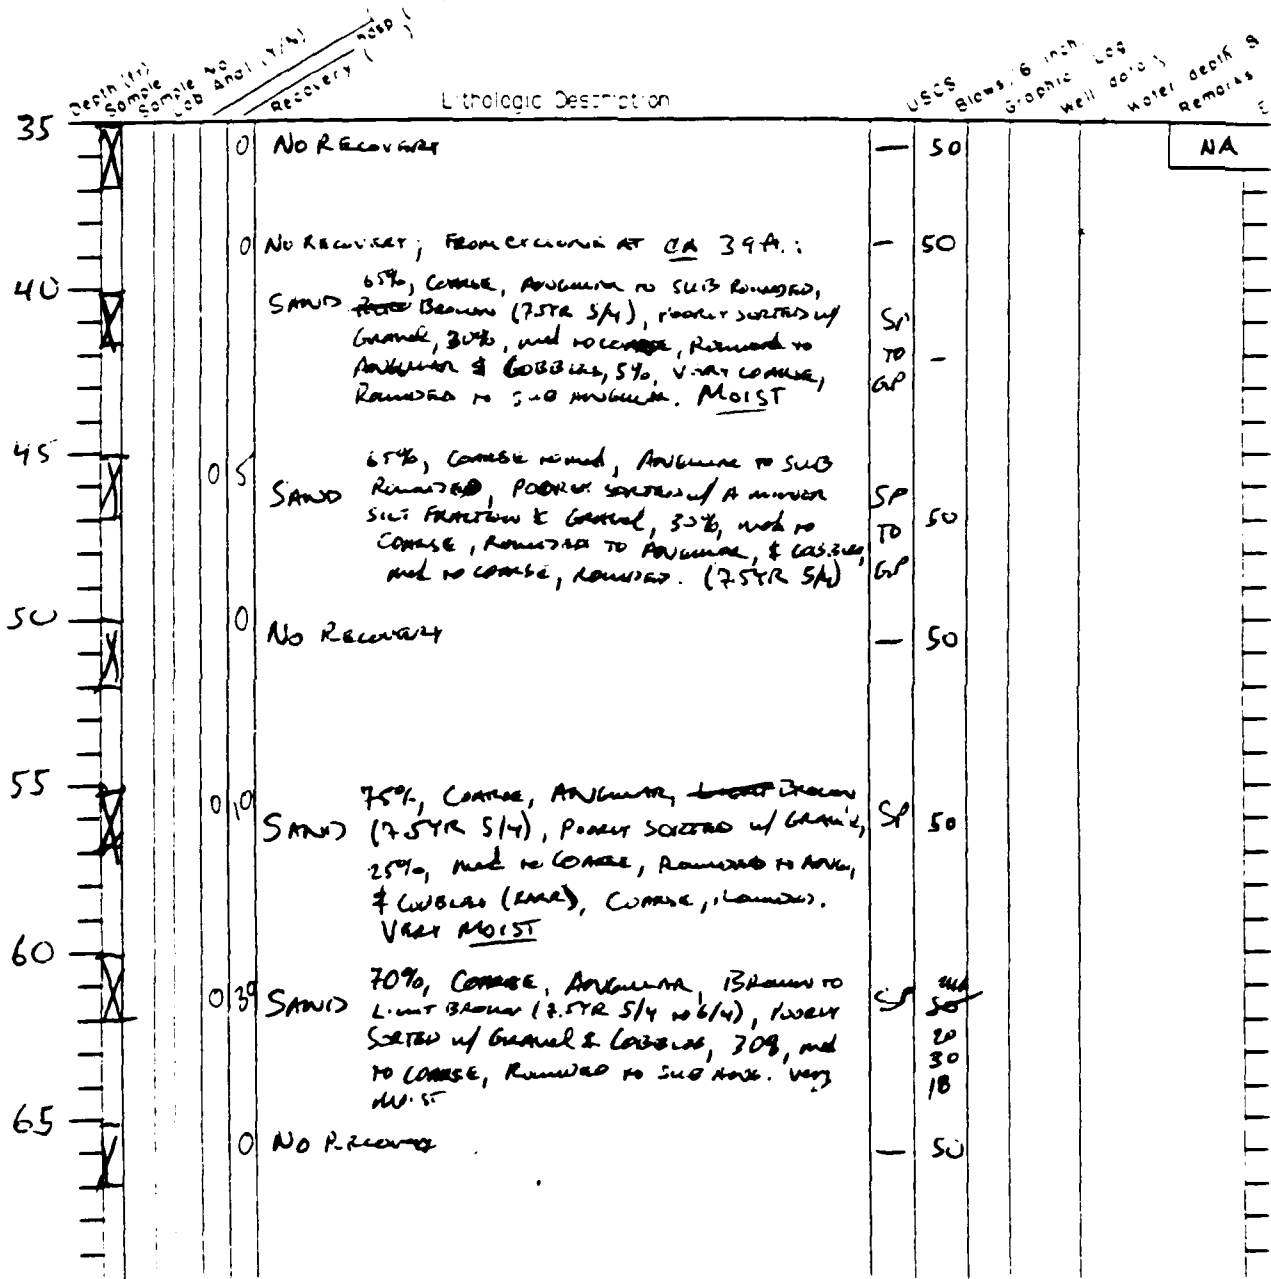 Depth (ft)
Sample
Sample No
Lab Anal (Y/N)
Resp (
Recovery (
Lithologic Description
USCS
Blows/6 inch.
Graphic Log
Well data
Water depth &
Remarks
35 0 NO RECOVERY — 50 NA
0 NO RECOVERY; FROM CYCLONE AT CA 39 ft.: — 50
40
65%, COARSE, ANGULAR TO SUB ROUNDED,
SAND BROWN (7.5YR 5/4), POORLY SORTED w/ SP
GRAVEL, 30%, med TO COARSE, ROUNDED TO TO —
ANGULAR & COBBLES, 5%, VERY COARSE, GP
ROUNDED TO SUB ANGULAR. MOIST
45
65%, COARSE TO med, ANGULAR TO SUB
0 5 SAND ROUNDED, POORLY SORTED w/ A MINOR SP
SILT FRACTION & GRAVEL, 30%, med TO 50
COARSE, ROUNDED TO ANGULAR, & COBBLES, TO
med TO COARSE, ROUNDED. (7.5YR 5/4) GP
50
0 NO RECOVERY — 50
55
75%, COARSE, ANGULAR, LIGHT BROWN
0 SAND (7.5YR 5/4), POORLY SORTED w/ GRAVEL, SP 50
25%, med to COARSE, ROUNDED TO ANG,
& COBBLES (RARE), COARSE, ROUNDED.
VERY MOIST
60
70%, COARSE, ANGULAR, BROWN TO
0 SAND LIGHT BROWN (7.5YR 5/4 to 6/4), POORLY SP 50
SORTED w/ GRAVEL & COBBLES, 30%, med 20
TO COARSE, ROUNDED TO SUB ANG. VERY 30
MOIST 18
65
0 NO RECOVERY — 50